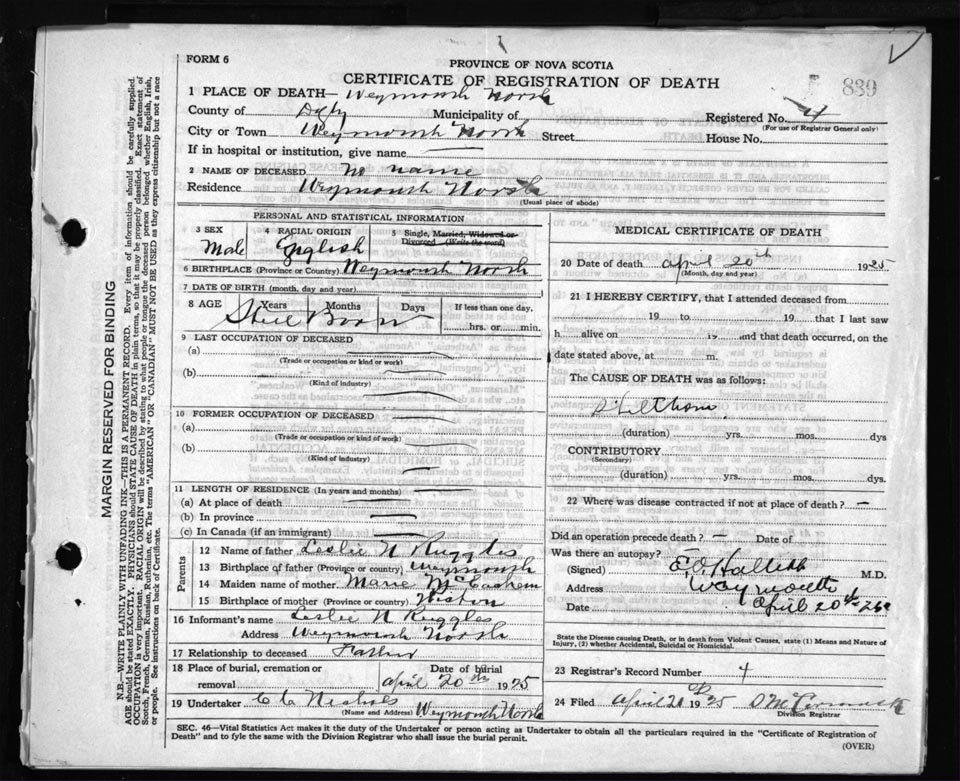 FORM 6
PROVINCE OF NOVA SCOTIA
CERTIFICATE OF REGISTRATION OF DEATH
839
1 PLACE OF DEATH— Weymouth North
County of Digby Municipality of
Registered No. 4
(For use of Registrar General only)
City or Town Weymouth North Street
House No.
If in hospital or institution, give name
2 NAME OF DECEASED No name
Residence Weymouth North
(Usual place of abode)
PERSONAL AND STATISTICAL INFORMATION
3 SEX
Male
4 RACIAL ORIGIN
English
5 Single, Married, Widowed or
Divorced (Write the word)
6 BIRTHPLACE (Province or Country) Weymouth North
7 DATE OF BIRTH (month, day and year)
8 AGE Years Months Days If less than one day,
Still Born
hrs. or min.
9 LAST OCCUPATION OF DECEASED
(a)
(Trade or occupation or kind or work)
(b)
(Kind of industry)
10 FORMER OCCUPATION OF DECEASED
(a)
(Trade or occupation or kind of work)
(b)
(Kind of industry)
11 LENGTH OF RESIDENCE (In years and months)
(a) At place of death
(b) In province
(c) In Canada (if an immigrant)
Parents
12 Name of father Leslie N Ruggles
13 Birthplace of father (Province or country) Weymouth
14 Maiden name of mother Marie
15 Birthplace of mother (Province or country)
16 Informant's name Leslie N Ruggles
Address Weymouth North
17 Relationship to deceased Father
18 Place of burial, cremation or
removal
Date of burial
April 20th 1925
19 Undertaker
(Name and Address) Weymouth North
MEDICAL CERTIFICATE OF DEATH
20 Date of death April 20th 1925
(Month, day and year)
21 I HEREBY CERTIFY, that I attended deceased from
19 to 19 that I last saw
h alive on 19 and that death occurred, on the
date stated above, at m.
The CAUSE OF DEATH was as follows:
(duration) yrs. mos. dys
CONTRIBUTORY
(Secondary)
(duration) yrs. mos. dys
22 Where was disease contracted if not at place of death? —
Did an operation precede death? — Date of
Was there an autopsy?
(Signed) M.D.
Address Weymouth
Date April 20th
State the Disease causing Death, or in death from Violent Causes, state (1) Means and Nature of
Injury, (2) whether Accidental, Suicidal or Homicidal.
23 Registrar's Record Number 4
24 Filed April 20 1925
Division Registrar
SEC. 46—Vital Statistics Act makes it the duty of the Undertaker or person acting as Undertaker to obtain all the particulars required in the "Certificate of Registration of
Death" and to fyle the same with the Division Registrar who shall issue the burial permit.
(OVER)
MARGIN RESERVED FOR BINDING
N.B.—WRITE PLAINLY WITH UNFADING INK—THIS IS A PERMANENT RECORD. Every item of information should be carefully supplied.
AGE should be stated EXACTLY. PHYSICIANS should STATE CAUSE OF DEATH in plain terms, so that it may be properly classified. Exact statement of
OCCUPATION is very important. RACIAL ORIGIN will be described by stating to what people or tongue the deceased person belonged whether English, Irish,
Scotch, French, German, Russian, Ruthenian, etc. The terms "AMERICAN" OR "CANADIAN" MUST NOT BE USED as they express citizenship but not a race
or people. See instructions on back of Certificate.